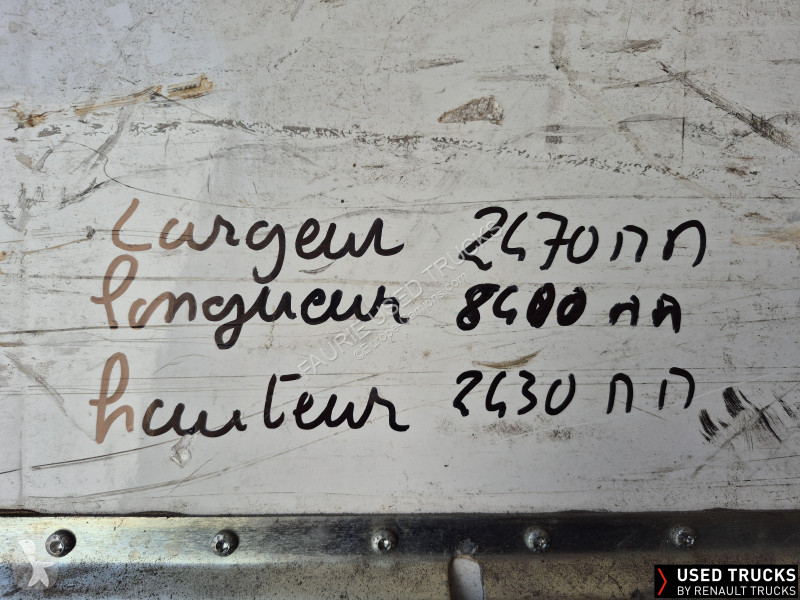 Largeur 2470 mm
longueur 8400 mm
hauteur 2430 mm
FAURIE USED TRUCKS
USED TRUCKS
BY RENAULT TRUCKS